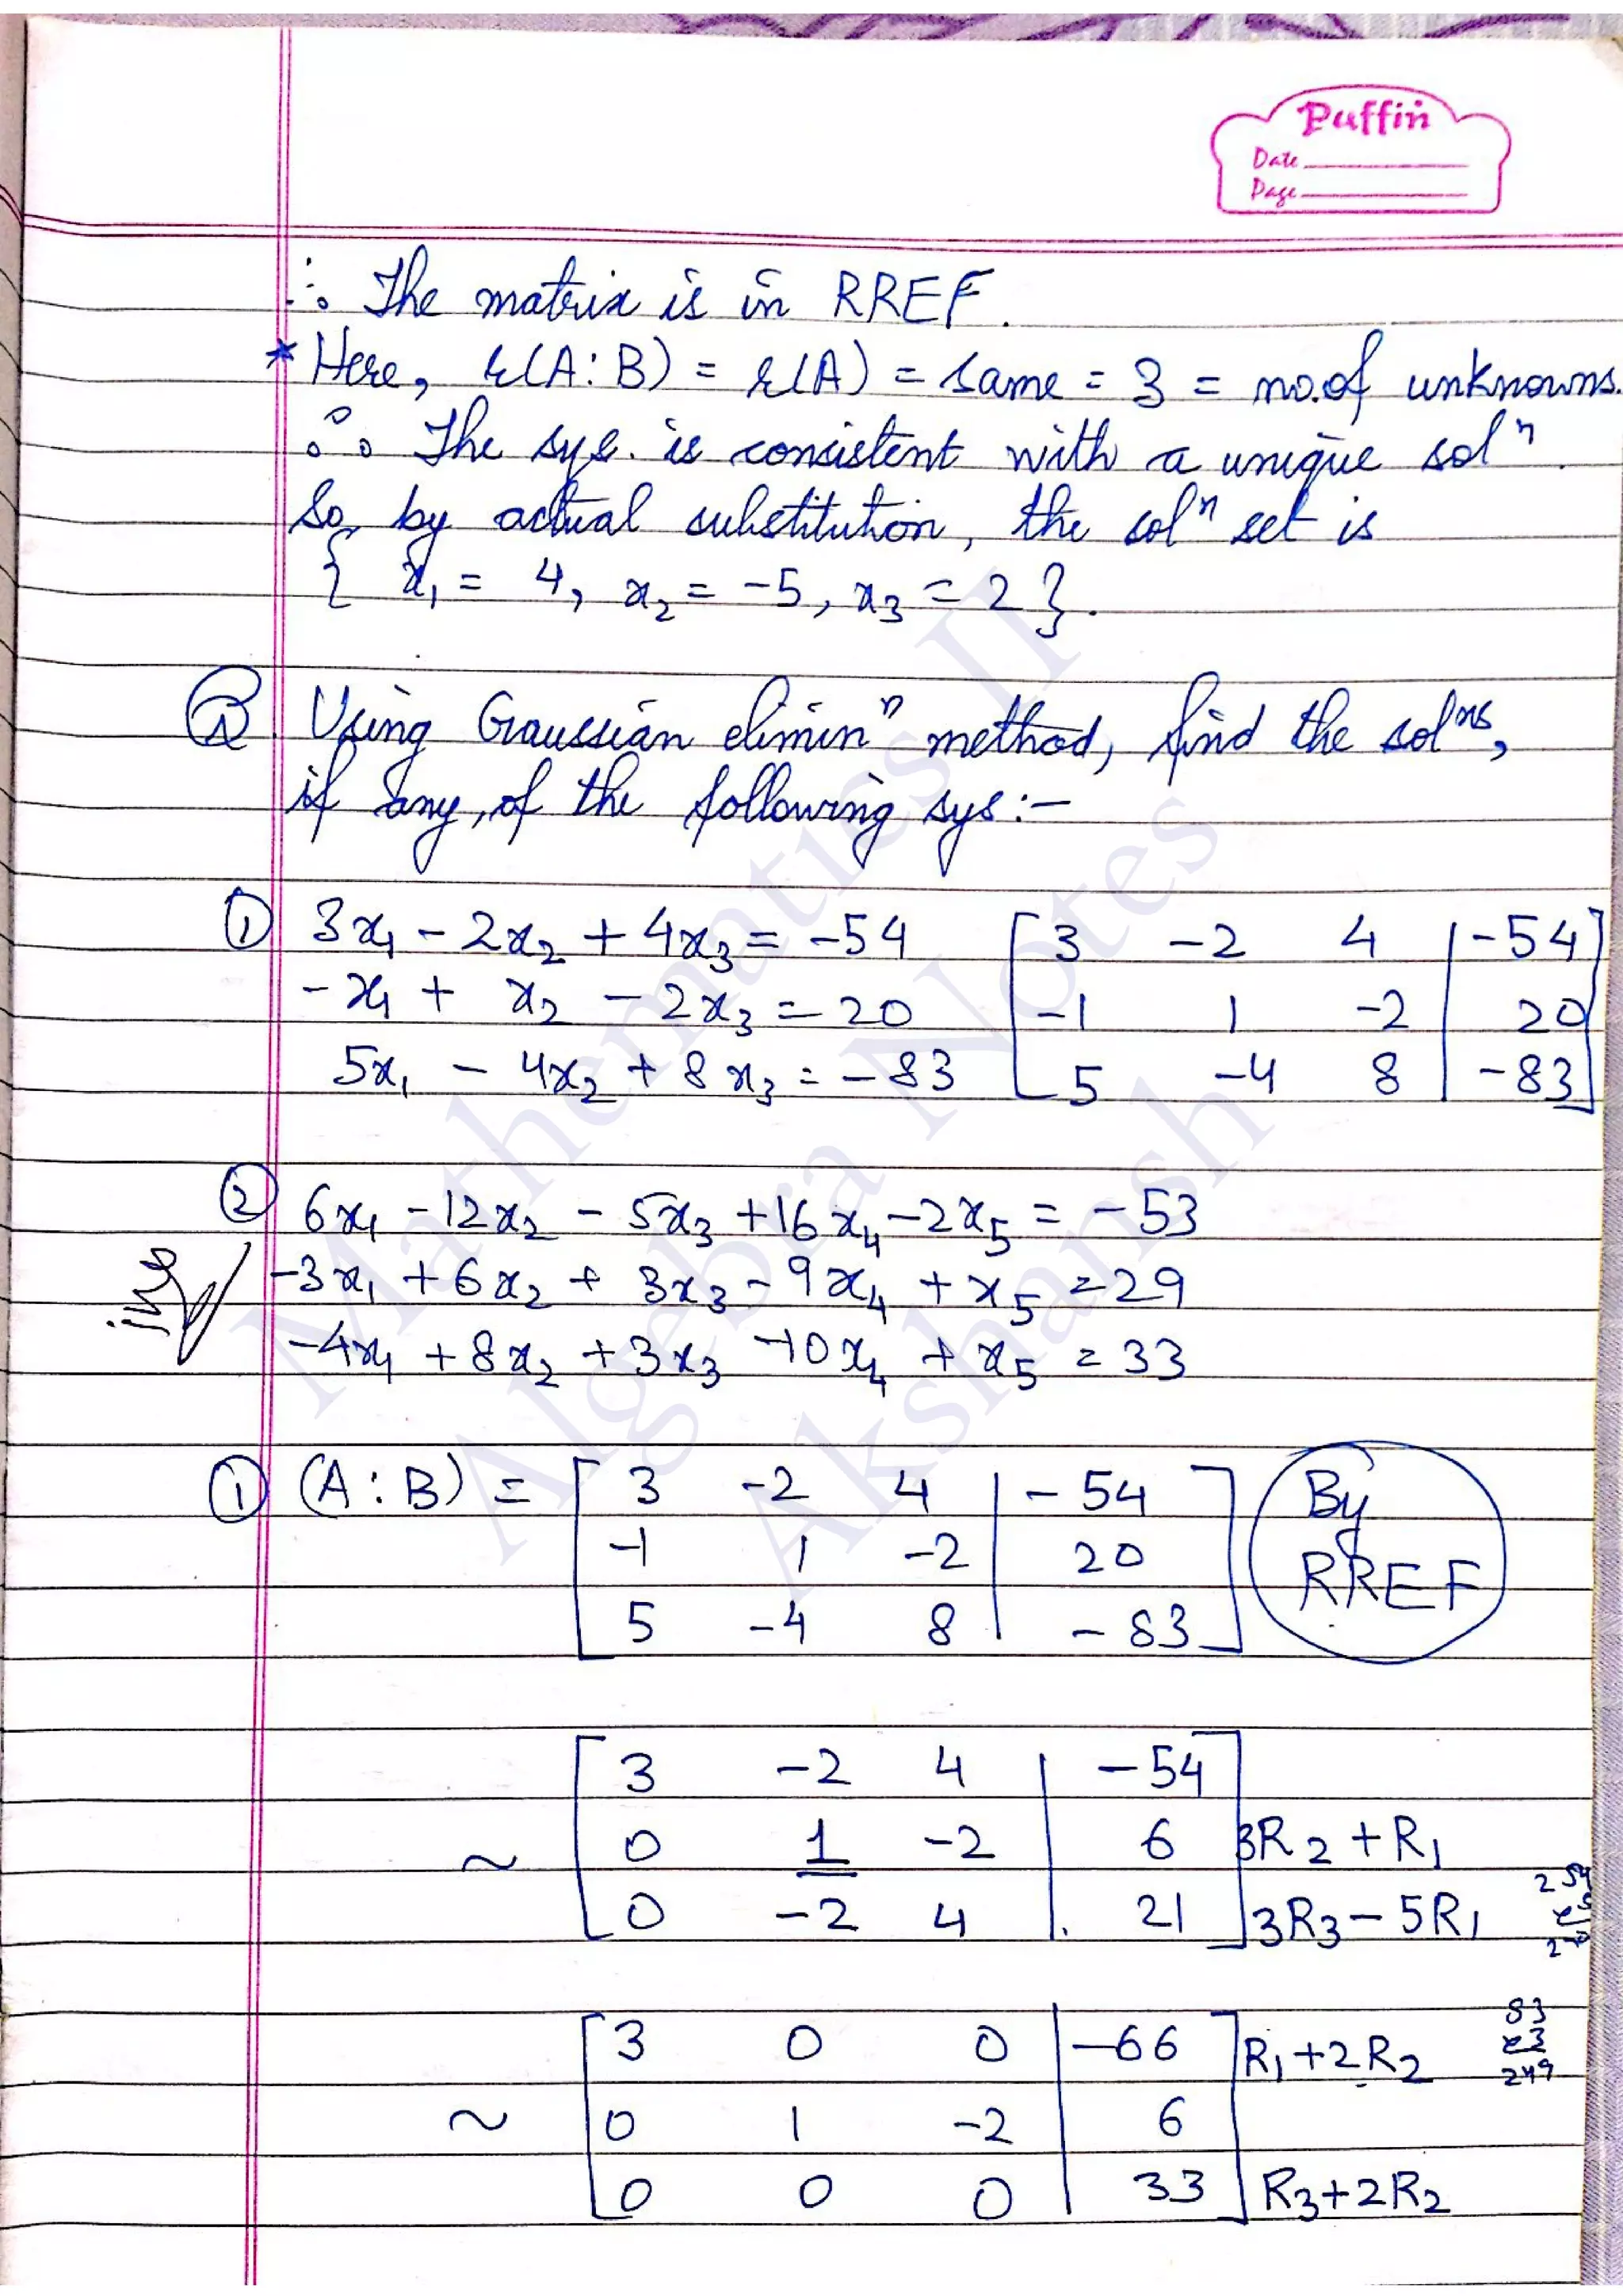 Puffin
Date
Page
∴ The matrix is in RREF.
* Here, r(A:B) = r(A) = same = 3 = no.of unknowns.
∴ The sys. is consistent with a unique solⁿ.
So, by actual substitution, the solⁿ set is
{ x₁ = 4, x₂ = -5, x₃ = 2 }.
Q Using Gaussian eliminⁿ method, find the solⁿˢ,
if any, of the following sys:-
① 3x₁ - 2x₂ + 4x₃ = -54 [ 3 -2 4 | -54 ]
-x₁ + x₂ - 2x₃ = 20 [ -1 1 -2 | 20 ]
5x₁ - 4x₂ + 8x₃ = -83 [ 5 -4 8 | -83 ]
② 6x₁ - 12x₂ - 5x₃ + 16x₄ - 2x₅ = -53
-3x₁ + 6x₂ + 3x₃ - 9x₄ + x₅ = 29
-4x₁ + 8x₂ + 3x₃ - 10x₄ + x₅ = 33
① (A:B) = [ 3 -2 4 | -54 ] By
[ -1 1 -2 | 20 ] RREF
[ 5 -4 8 | -83 ]
[ 3 -2 4 | -54 ]
~ [ 0 1 -2 | 6 ] 3R₂ + R₁
[ 0 -2 4 | 21 ] 3R₃ - 5R₁
83
x3
249
[ 3 0 0 | -66 ] R₁ + 2R₂
~ [ 0 1 -2 | 6 ]
[ 0 0 0 | 33 ] R₃ + 2R₂
Mathematics II
Algebra Notes
Akshansh